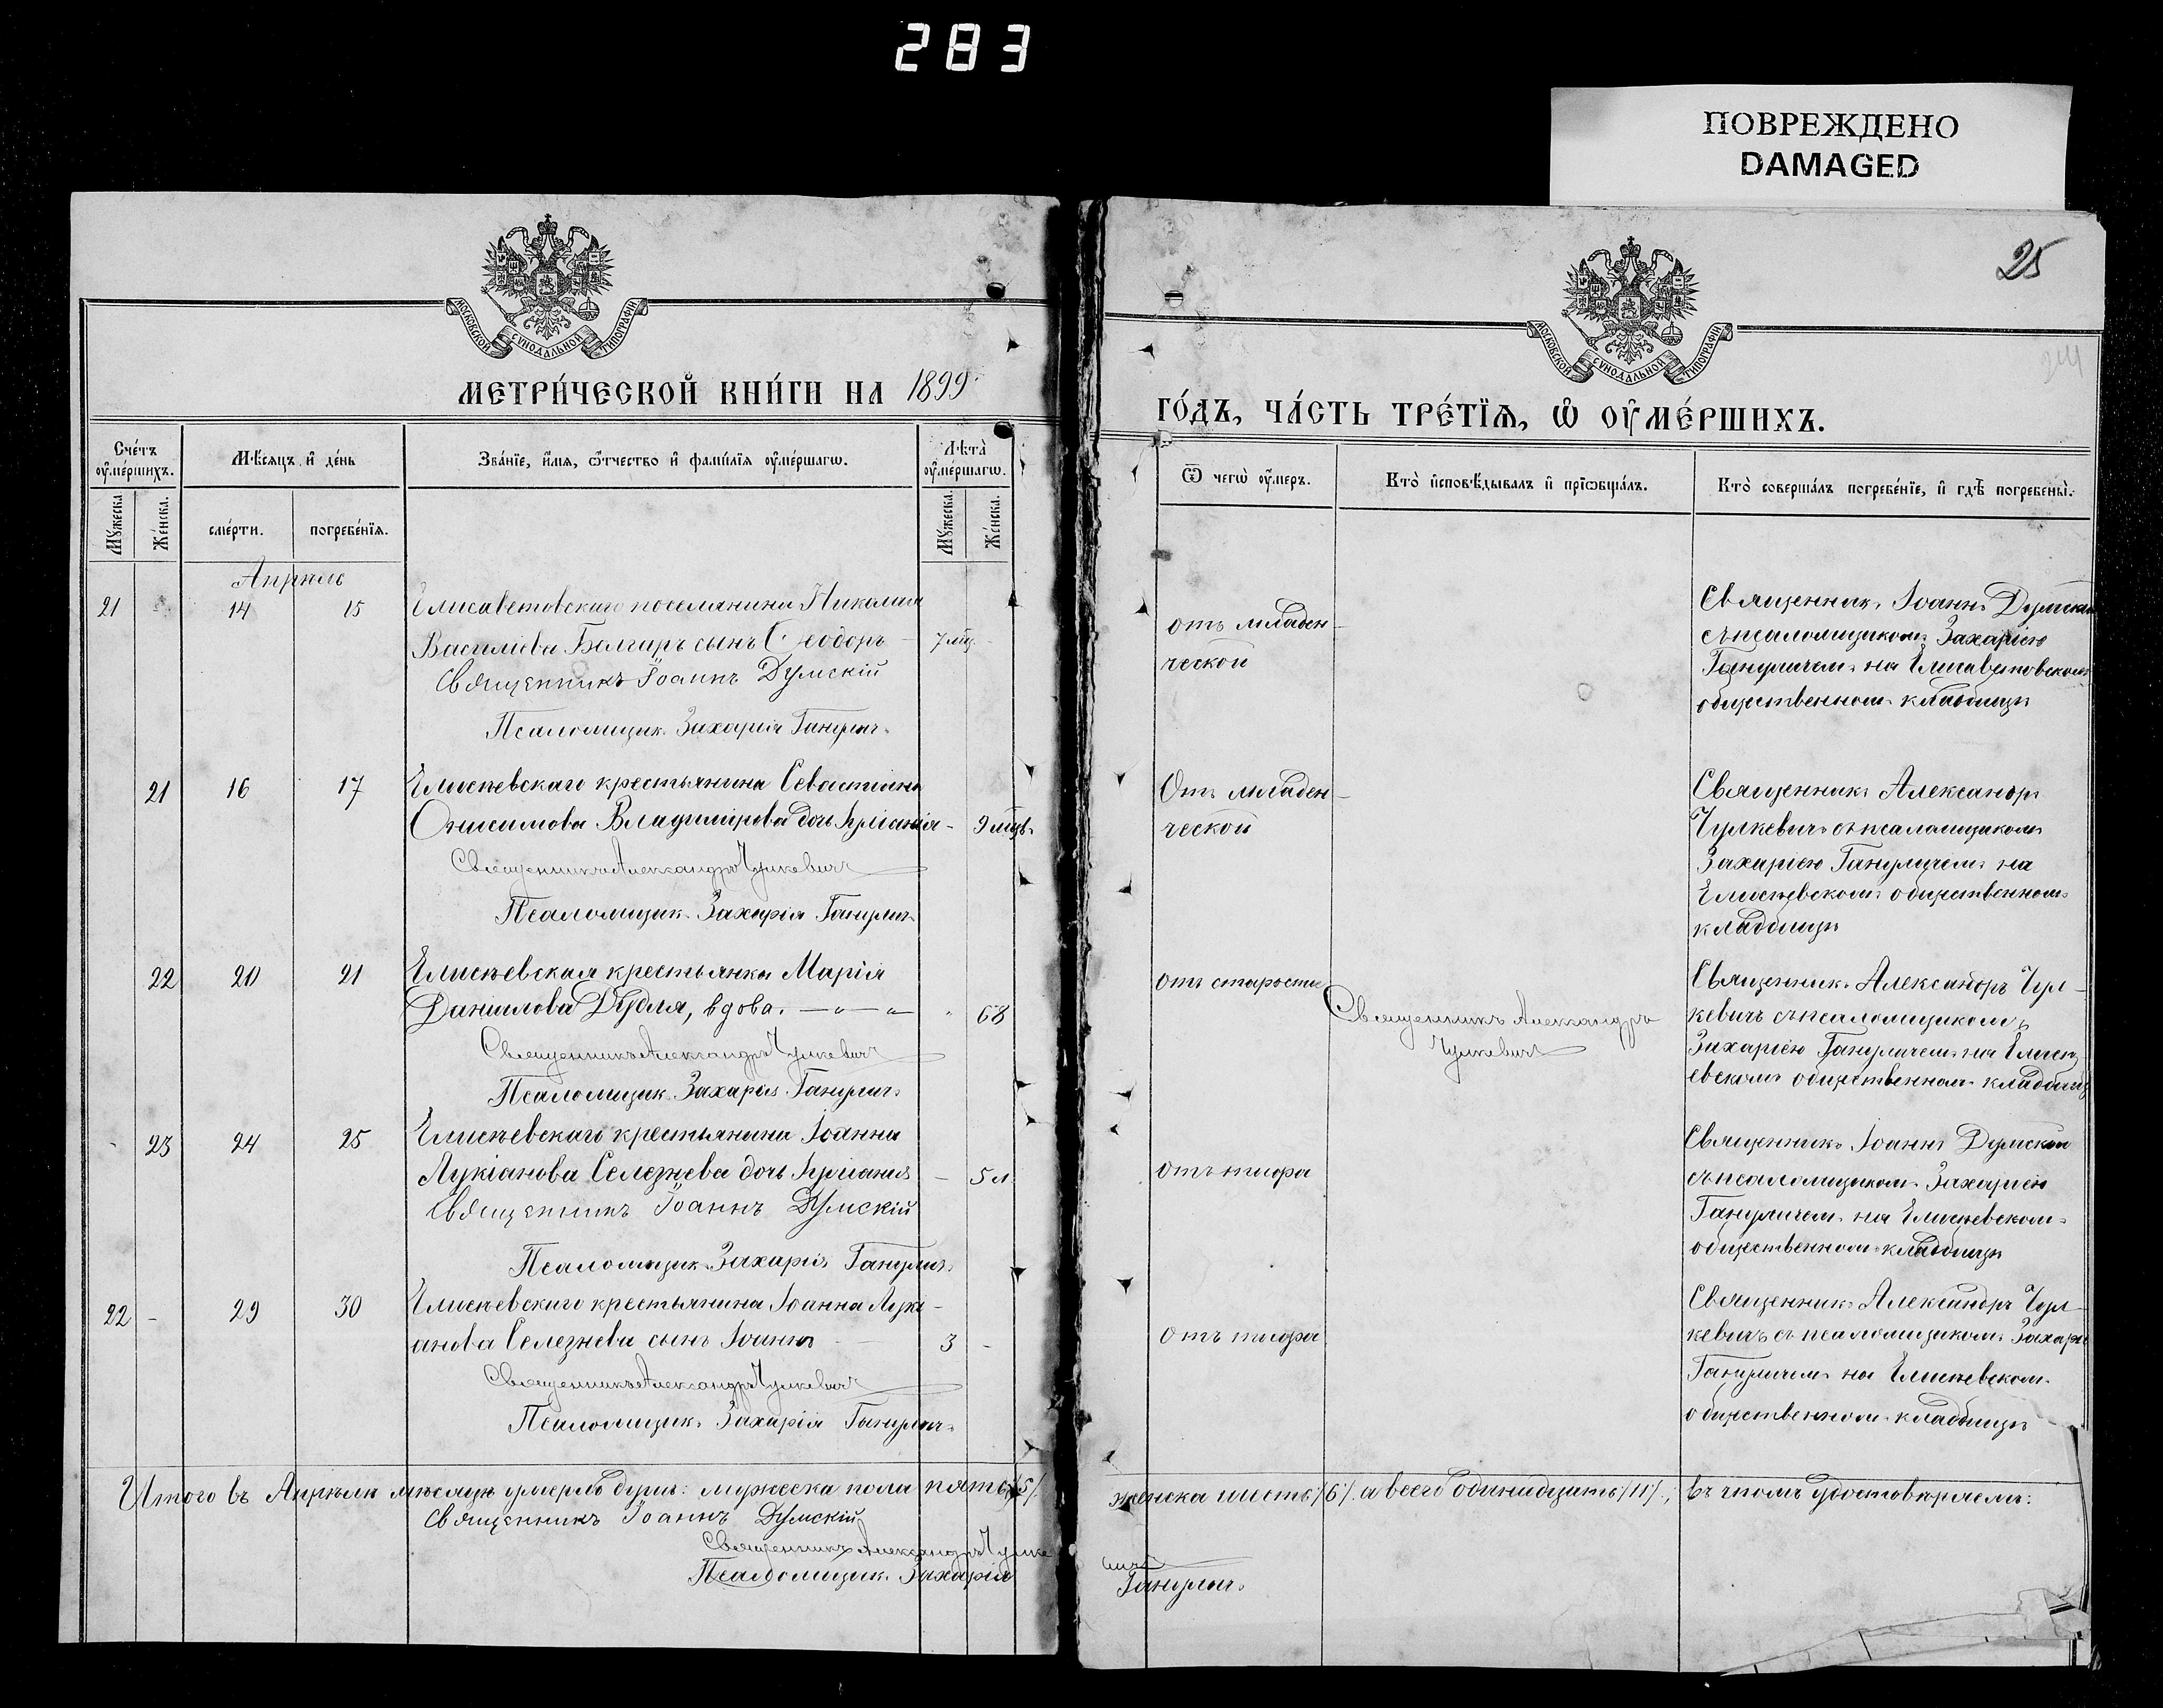 283
ПОВРЕЖДЕНО
DAMAGED
25
МОСКОВСКОЙ СѴНОДАЛЬНОЙ ТИПОГРАФІИ
МОСКОВСКОЙ СѴНОДАЛЬНОЙ ТИПОГРАФІИ
МЕТРИ́ЧЕСКОЙ КНИ́ГИ НА 1899
ГО́ДЪ, ЧА́СТЬ ТРЕ́ТІѦ, Ѡ҆ ОУ҆МЕ́РШИХЪ.
Сче́тъ оу҆ме́ршихъ.
Мꙋ́жеска
Же́нска.
Мѣ́сѧцъ и҆ де́нь
сме́рти.
погребе́нїѧ.
Зва́нїе, и҆́мѧ, ѻ҆́тчество и҆ фами́лїѧ оу҆ме́ршагѡ.
Лѣ́та оу҆ме́ршагѡ.
Мꙋ́жеска.
Же́нска.
Ѿ чегѡ̀ оу҆́меръ.
Кто̀ и҆сповѣ́дывалъ и҆ прїѡбща́лъ.
Кто̀ соверша́лъ погребе́нїе, и҆ гдѣ̀ погребены̀.
Апрѣль
21 14 15 Елисаветовскаго поселянина Николая
Василіева Болгиръ сынъ Ѳеодоръ – 7 мц.
Священникъ Іоаннъ Думскій
Псаломщикъ Захарія Ганулич
отъ младен-
ческой
Священникъ Іоаннъ Думскій
съ псаломщикомъ Захаріею
Гануличемъ на Елисаветовскомъ
общественномъ кладбищѣ
21 16 17 Елисѣевскаго крестьянина Севастіана
Онисимова Владимірова дочь Іуліанія – 9 мцъ.
Священникъ Александръ Чулкевичъ
Псаломщикъ Захарія Гануличъ
Отъ младен-
ческой
Священникъ Александръ
Чулкевичъ съ псаломщикомъ
Захаріею Гануличемъ на
Елисѣевскомъ общественномъ
кладбищѣ
22 20 21 Елисѣевская крестьянка Марія
Даніилова Дубля, вдова. 68
Священникъ Александръ Чулкевичъ
Псаломщикъ Захарія Гануличъ
отъ старости
Священникъ Александръ
Чулкевичъ
Священникъ Александръ Чул-
кевичъ съ псаломщикомъ
Захаріею Гануличемъ на Елисѣ-
евскомъ общественномъ кладбищѣ
23 24 25 Елисѣевскаго крестьянина Іоанна
Лукіанова Селезнева дочь Іуліанія – 5 л
Священникъ Іоаннъ Думскій
Псаломщикъ Захарія Гануличъ
отъ тифа
Священникъ Іоаннъ Думскій
съ псаломщикомъ Захаріею
Гануличемъ на Елисѣевскомъ
общественномъ кладбищѣ
22 – 29 30 Елисѣевскаго крестьянина Іоанна Луки-
анова Селезнева сынъ Іоаннъ 3 –
Священникъ Александръ Чулкевичъ
Псаломщикъ Захарія Гануличъ
отъ тифа
Священникъ Александръ Чул-
кевичъ съ псаломщикомъ Захарі
Гануличемъ на Елисѣевскомъ
общественномъ кладбищѣ
Итого въ Апрѣлѣ мѣсяцѣ умерло душъ: мужеска пола пять /5/
женска шесть /6/ а всего одинадцать /11/, въ чемъ удостовѣряемъ:
Священникъ Іоаннъ Думскій
Священникъ Александръ Чулке
вичъ
Псаломщикъ Захарія
Гануличъ